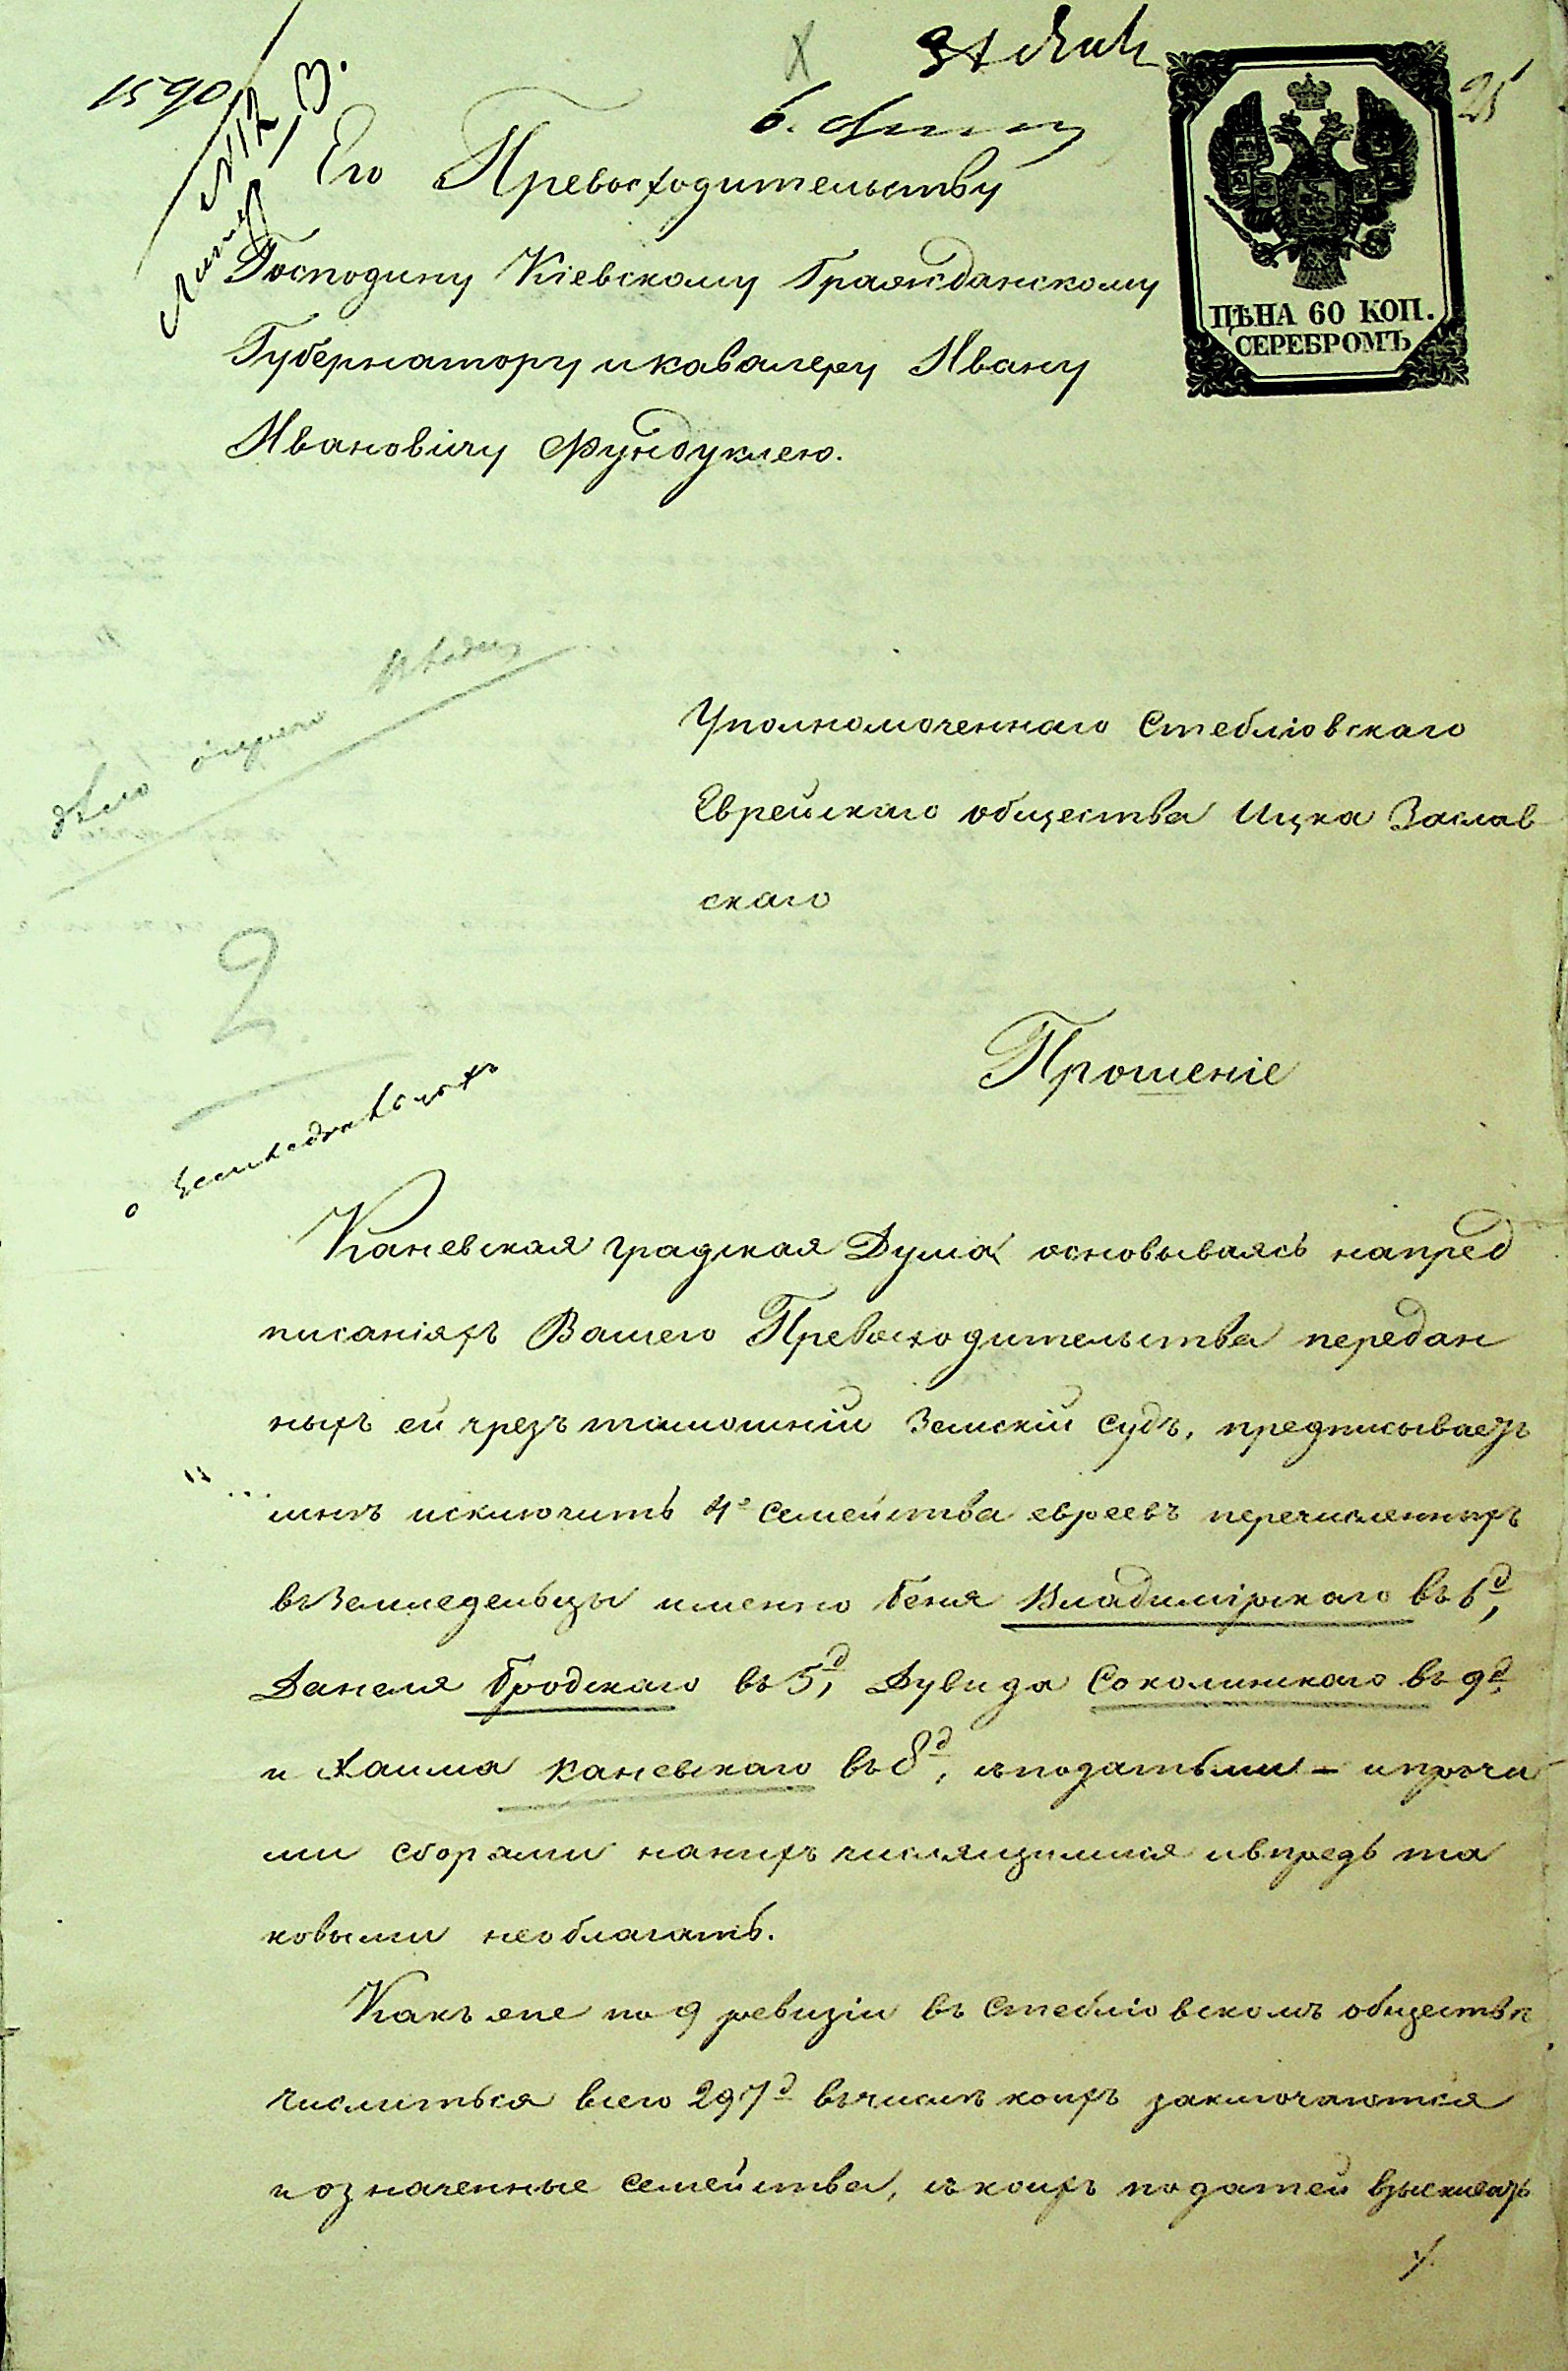 1590
25
Его Превосходительству
Господину Кіевскому Гражданскому
Губернатору и кавалеру Ивану
Ивановичу Фундуклею.
ЦѢНА 60 КОП.
СЕРЕБРОМЪ
Уполномоченнаго Стебліовскаго
Еврейскаго общества Ицка Заслав
скаго
2
Прошеніе
о земледѣльцахъ
Каневская градская Дума основываясь напред
писаніяхъ Вашего Превосходительства передан
ныхъ ей чрезъ тамошній Земскій судъ, предписываетъ
мнѣ исключить 4е семейства евреевъ перечисленныхъ
въ Земледельцы именно Беня Владимірскаго въ 6д,
Данеля Бродскаго въ 5д, Дувида Соколинскаго въ 9д,
и Хаима Каневскаго въ 8д, съ податьми – и прочи
ми сборами нанихъ числящимися и впредь та
ковыми необлагать.
Какъ япе по 9 ревизіи въ Стебліовскомъ обществѣ
числиться всего 297д въ числѣ коихъ заключаются
и означенные семейства, съ коихъ податей взыскивать